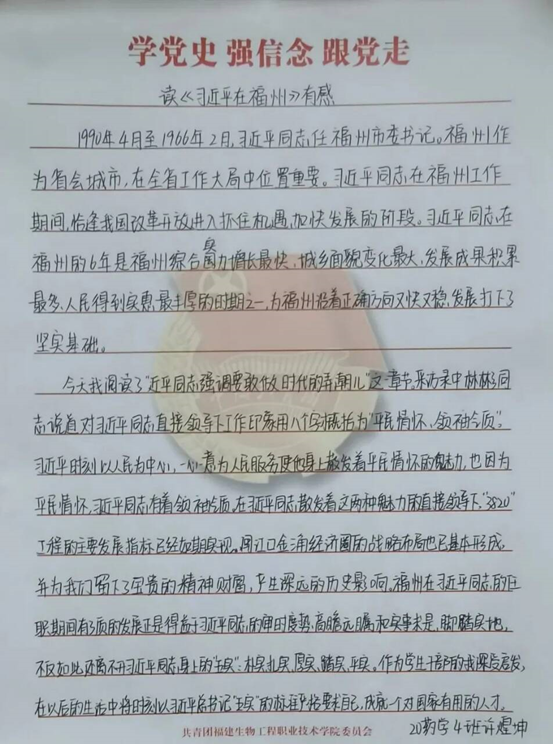 学党史 强信念 跟党走
读《习近平在福州》有感
1990年4月至1966年2月,习近平同志任福州市委书记。福州作
为省会城市,在全省工作大局中位置重要。习近平同志在福州工作
期间,恰逢我国改革开放进入抓住机遇,加快发展的阶段。习近平同志在
福州的6年是福州综合实力增长最快,城乡面貌变化最大,发展成果积累
最多,人民得到实惠最丰厚的时期之一,为福州沿着正确方向又快又稳发展打下了
坚实基础。
今天我阅读了"近平同志强调要敢做时代的弄潮儿"这一章节,采访录中林彬同
志说道对习近平同志直接领导下工作印象用八个字概括为"平民情怀、领袖气质"。
习近平时刻以人民为中心,一心一意为人民服务使他身上散发着平民情怀的魅力,也因为
平民情怀,习近平同志有着领袖气质,在习近平同志散发着这两种魅力的直接领导下,"3820"
工程的主要发展指标已经如期实现。闽江口金涌经济圈的战略布局也已基本形成,
并为我们留下了宝贵的精神财富,产生深远的历史影响。福州在习近平同志的任
职期间有了质的发展正是得益于习近平同志的审时度势,高瞻远瞩和实事求是,脚踏实地,
不仅如此还离不开习近平同志身上的"实":朴实,扎实,厚实,踏实,平实。作为学生干部的我深受启发,
在以后的生活中将时刻以习近平总书记"实"的标准严格要求自己,成就一个对国家有用的人才。
共青团福建生物工程职业技术学院委员会
20药学4班许煌坤